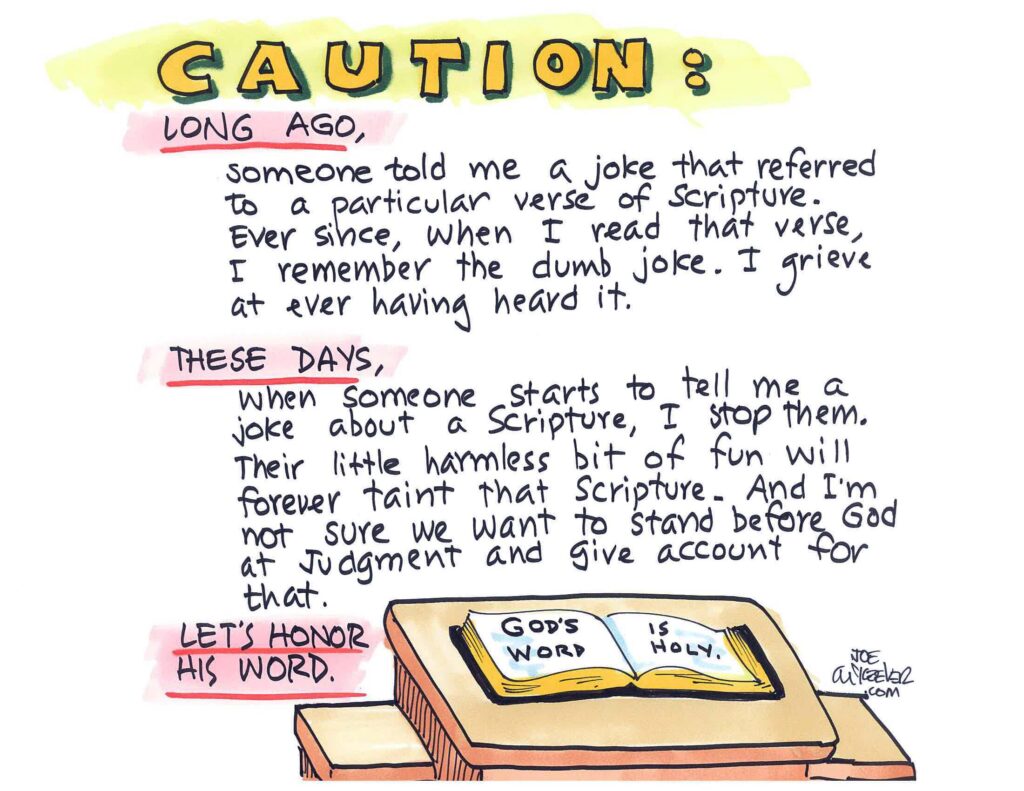 CAUTION:
LONG AGO,
someone told me a joke that referred
to a particular verse of Scripture.
Ever since, when I read that verse,
I remember the dumb joke. I grieve
at ever having heard it.
THESE DAYS,
when someone starts to tell me a
joke about a Scripture, I stop them.
Their little harmless bit of fun will
forever taint that Scripture. And I'm
not sure we want to stand before God
at Judgment and give account for
that.
LET'S HONOR
HIS WORD.
GOD'S
WORD
IS
HOLY.
JOE
McKEEVER
.COM